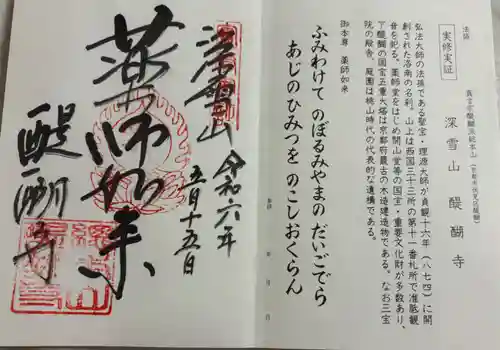 法話
実修実証
真言宗醍醐派総本山(京都市伏見区醍醐)
深雪山 醍醐寺
弘法大師の法孫である聖宝・理源大師が貞観十六年(八七四)に開
創された洛南の名刹。山上は西国三十三所の第十一番札所で准胝観
音を祀る。薬師堂をはじめ開山堂等の国宝・重要文化財が多数あり、
下醍醐の国宝五重大塔は京都府最古の木造建造物である。なお三宝
院の殿舎、庭園は桃山時代の代表的な遺構である。
ふみわけて のぼるみやまの だいごでら
あじのひみつを のこしおくらん
御本尊 薬師如来
年 月 日
深雪山
令和六年
五月十五日
薬師如来
醍醐寺